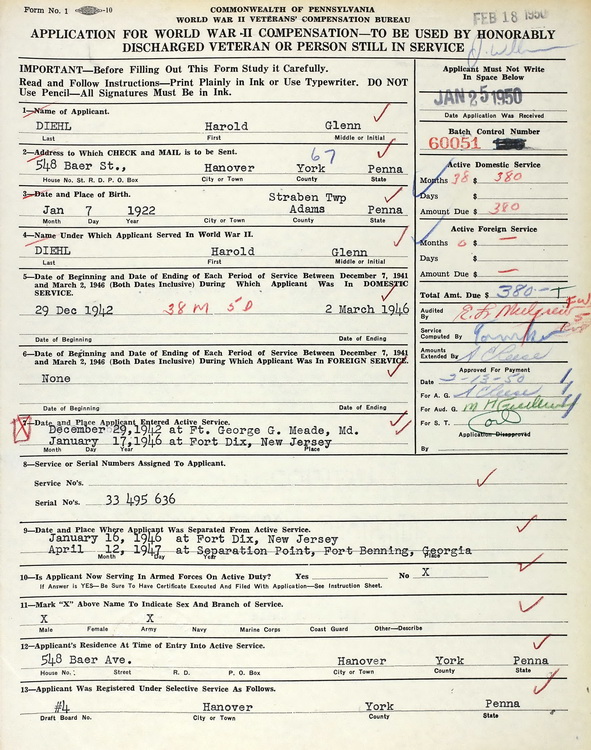 Form No. 1 10
COMMONWEALTH OF PENNSYLVANIA
WORLD WAR II VETERANS' COMPENSATION BUREAU
FEB 18 1950
APPLICATION FOR WORLD WAR II COMPENSATION—TO BE USED BY HONORABLY
DISCHARGED VETERAN OR PERSON STILL IN SERVICE
IMPORTANT—Before Filling Out This Form Study it Carefully.
Read and Follow Instructions—Print Plainly in Ink or Use Typewriter. DO NOT
Use Pencil—All Signatures Must Be in Ink.
1—Name of Applicant.
DIEHL Harold Glenn
Last First Middle or Initial
2—Address to Which CHECK and MAIL is to be Sent.
67
548 Baer St., Hanover York Penna
House No. St. R. D. P. O. Box City or Town County State
3—Date and Place of Birth.
Straben Twp
Jan 7 1922 Adams Penna
Month Day Year City or Town County State
4—Name Under Which Applicant Served In World War II.
DIEHL Harold Glenn
Last First Middle or Initial
5—Date of Beginning and Date of Ending of Each Period of Service Between December 7, 1941
and March 2, 1946 (Both Dates Inclusive) During Which Applicant Was In DOMESTIC
SERVICE.
29 Dec 1942 38 M 5 D 2 March 1946
Date of Beginning Date of Ending
6—Date of Beginning and Date of Ending of Each Period of Service Between December 7, 1941
and March 2, 1946 (Both Dates Inclusive) During Which Applicant Was in FOREIGN SERVICE.
None
Date of Beginning Date of Ending
7—Date and Place Applicant Entered Active Service.
December 29,1942 at Ft. George G. Meade, Md.
January 17,1946 at Fort Dix, New Jersey
Month Day Year Place
Applicant Must Not Write
In Space Below
JAN 25 1950
Date Application Was Received
Batch Control Number
60051
Active Domestic Service
Months 38 $ 380
Days $
Amount Due $ 380
Active Foreign Service
Months 0 $ —
Days $
Amount Due $ —
Total Amt. Due $ 380
Audited
By
Service
Computed By
Amounts
Extended By
Approved For Payment
Date 2-13-50
For A. G.
For Aud. G.
For S. T.
Application Disapproved
By
8—Service or Serial Numbers Assigned To Applicant.
Service No's.
Serial No's. 33 495 636
9—Date and Place Where Applicant Was Separated From Active Service.
January 16, 1946 at Fort Dix, New Jersey
April 12, 1947 at Separation Point, Fort Benning, Georgia
Month Day Year Place
10—Is Applicant Now Serving In Armed Forces On Active Duty? Yes No X
If Answer is YES—Be Sure To Have Certificate Executed And Filed With Application—See Instruction Sheet.
11—Mark "X" Above Name To Indicate Sex and Branch of Service.
X X
Male Female Army Navy Marine Corps Coast Guard Other—Describe
12—Applicant's Residence At Time of Entry Into Active Service.
548 Baer Ave. Hanover York Penna
House No. Street R. D. P. O. Box City or Town County State
13—Applicant Was Registered Under Selective Service As Follows.
#4 Hanover York Penna
Draft Board No. City or Town County State